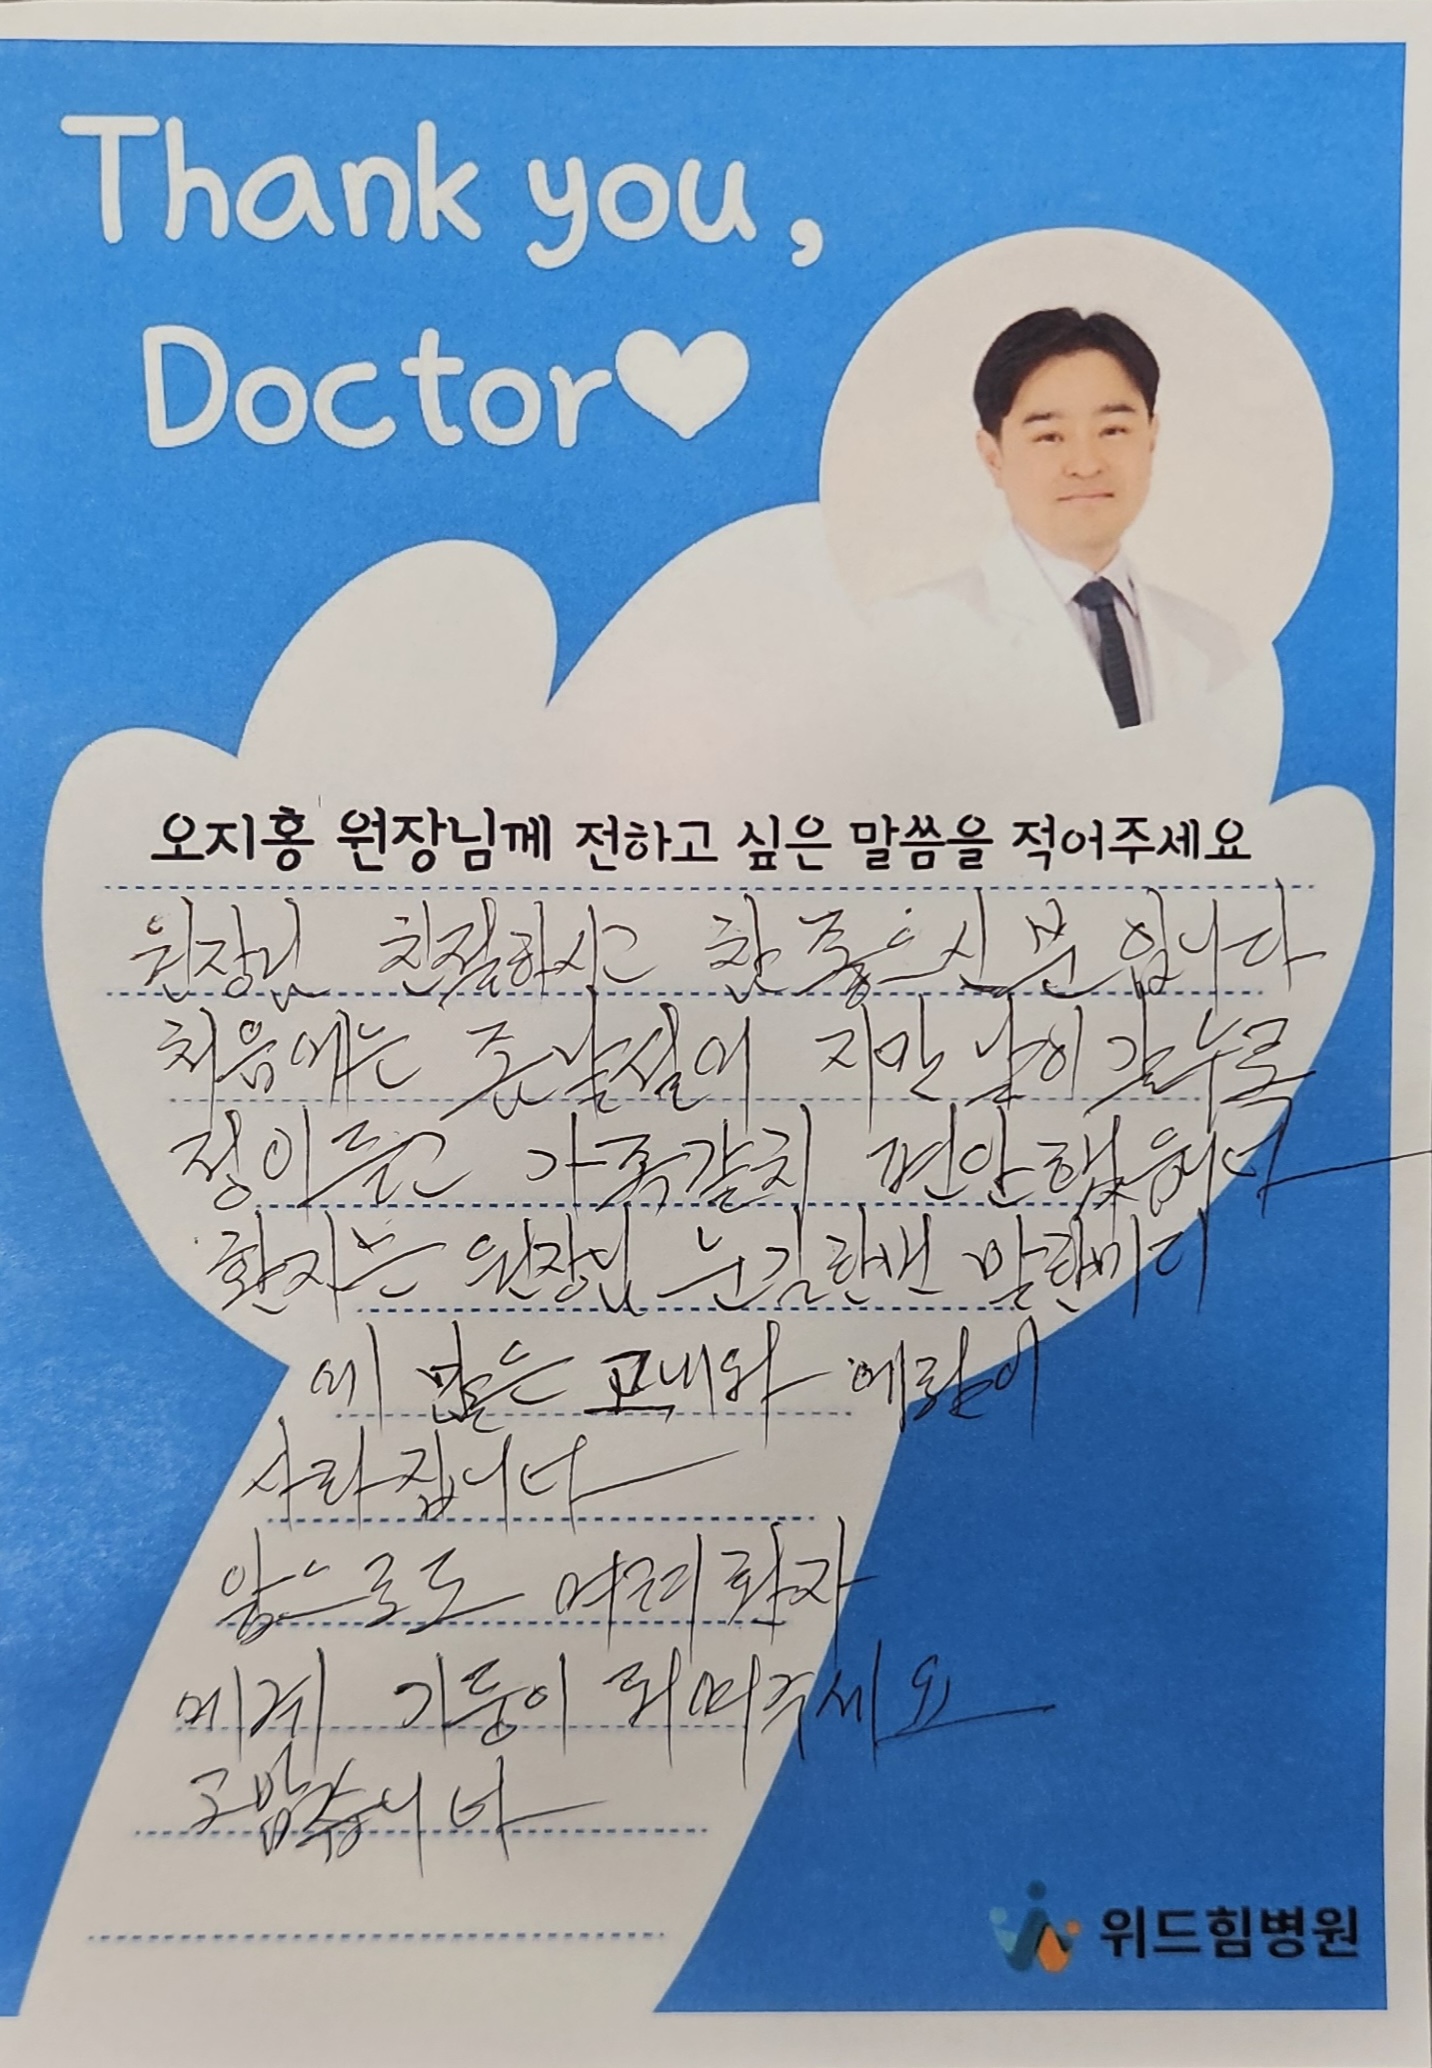 Thank you,
Doctor♥
오지홍 원장님께 전하고 싶은 말씀을 적어주세요
원장님 친절하시고 참 좋으신 분 입니다
처음에는 좀 낯설어 지만 날이 갈수록
정이들고 가족같치 편안했읍니다
환자는 원장님 눈길한번 말한마디
에 많은 고 와
사라집니다
앞으로도 여러환자
에게 기둥이 되여주세요
고맙습니다
위드힘병원